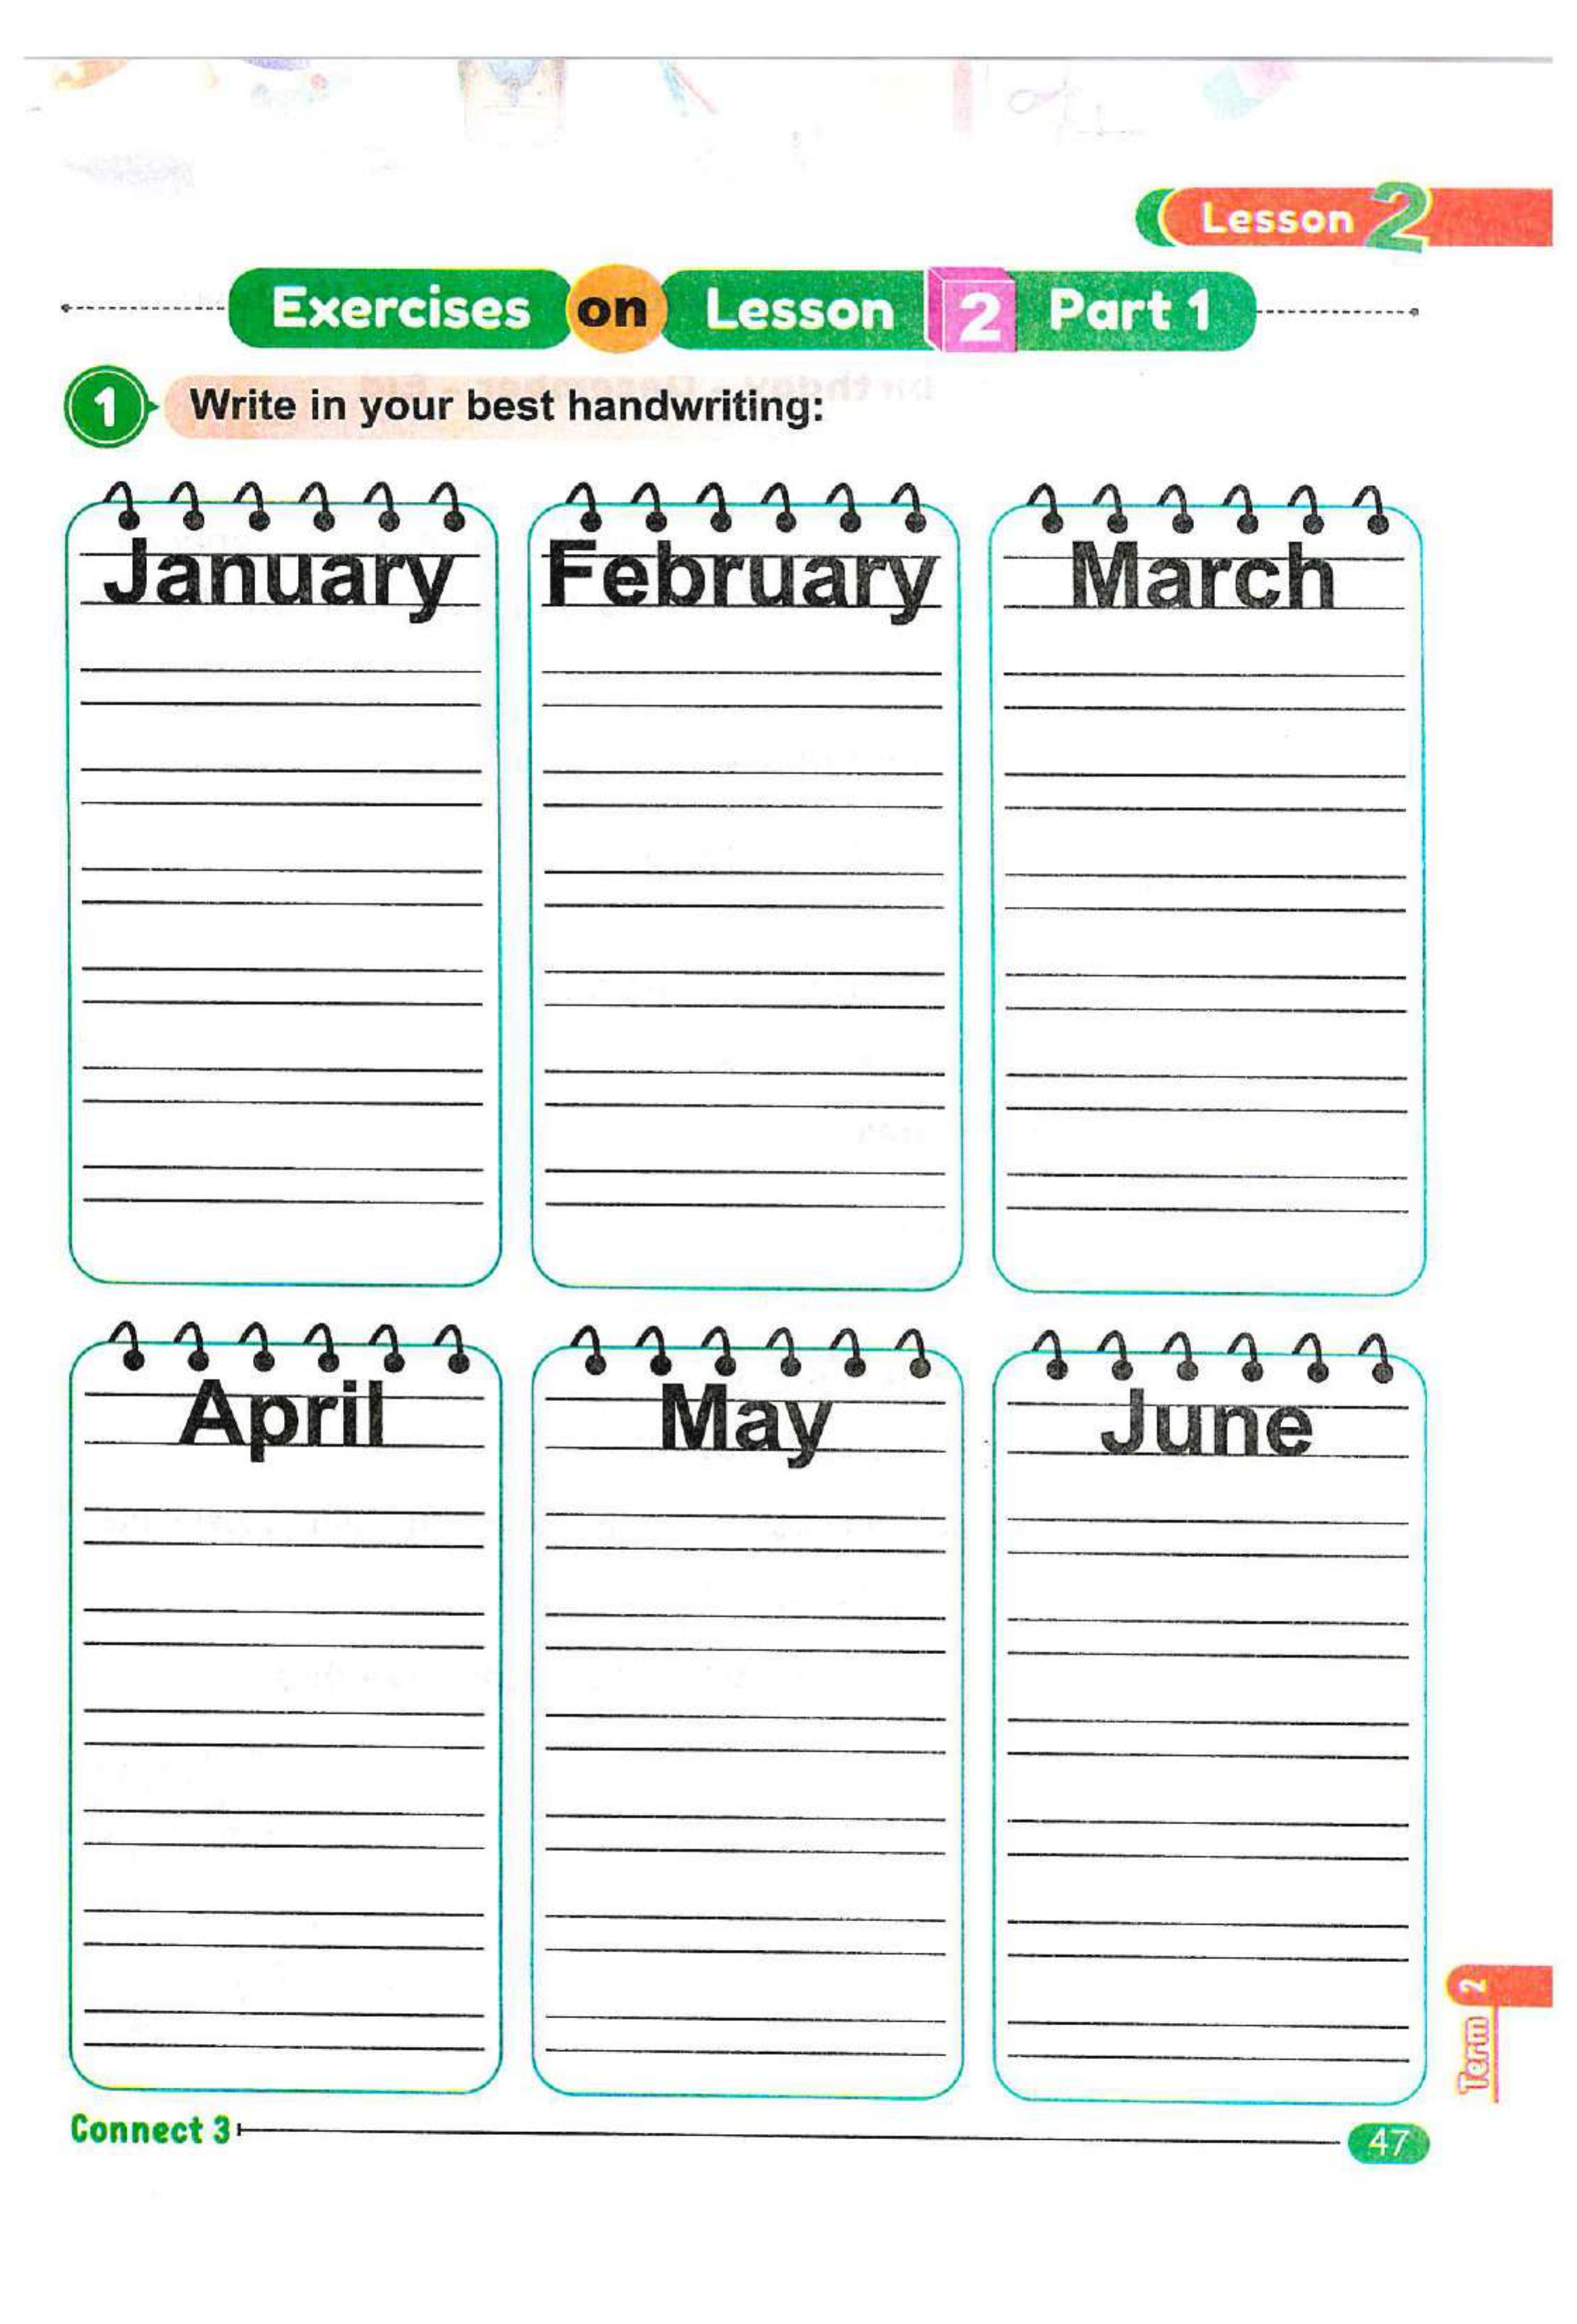 Lesson 2
Exercises on Lesson 2 Part 1
1 Write in your best handwriting:
January February March
April May June
Term 2
Connect 3 47